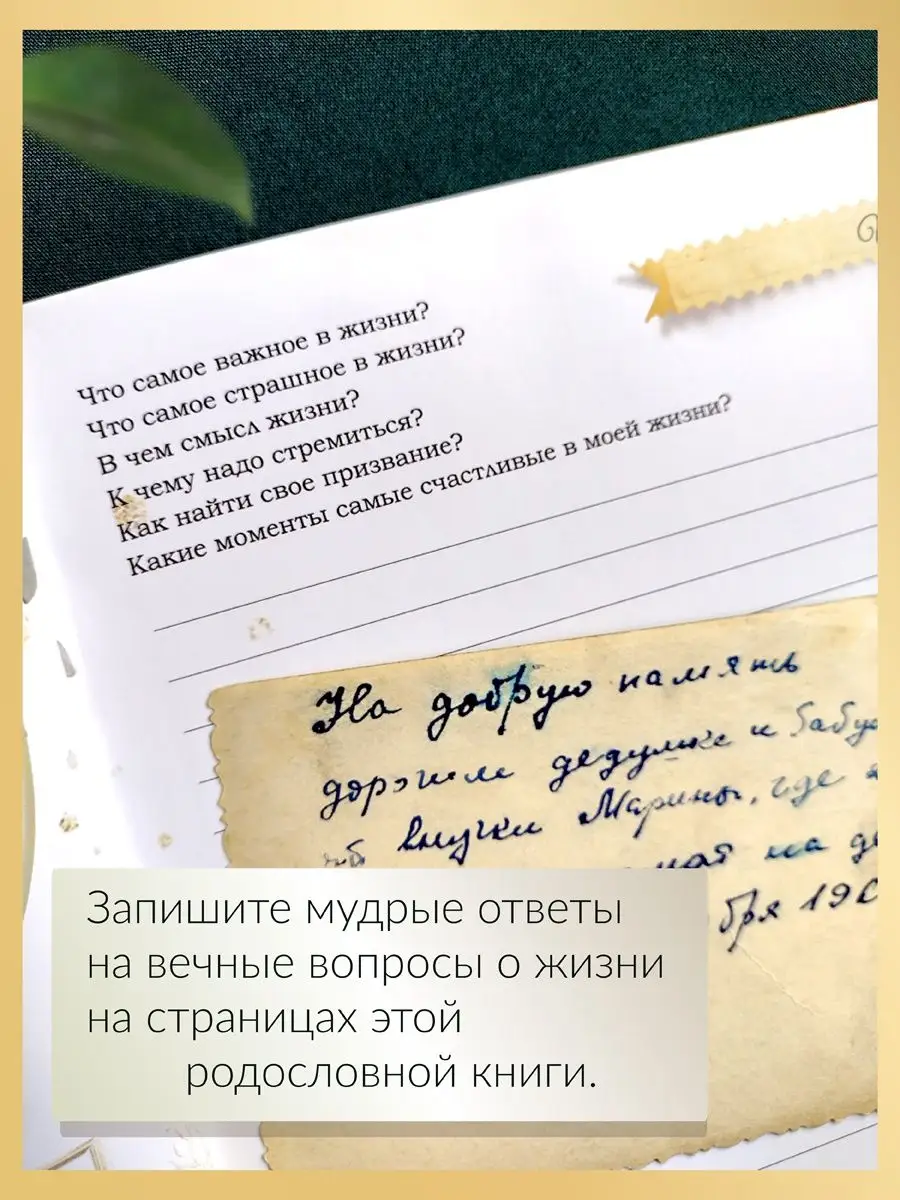 Что самое важное в жизни?
Что самое страшное в жизни?
В чем смысл жизни?
К чему надо стремиться?
Как найти свое призвание?
Какие моменты самые счастливые в моей жизни?
На добрую память
дорогим дедушке и бабу
внучки Марины, где
на
бря 196
Запишите мудрые ответы
на вечные вопросы о жизни
на страницах этой
родословной книги.